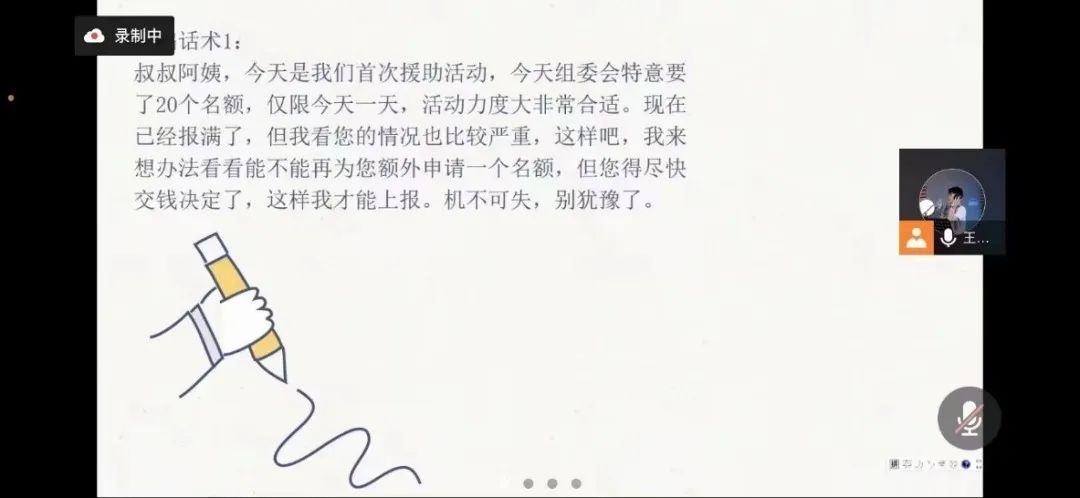 录制中
话术1：
叔叔阿姨，今天是我们首次援助活动，今天组委会特意要
了20个名额，仅限今天一天，活动力度大非常合适。现在
已经报满了，但我看您的情况也比较严重，这样吧，我来
想办法看看能不能再为您额外申请一个名额，但您得尽快
交钱决定了，这样我才能上报。机不可失，别犹豫了。
王...